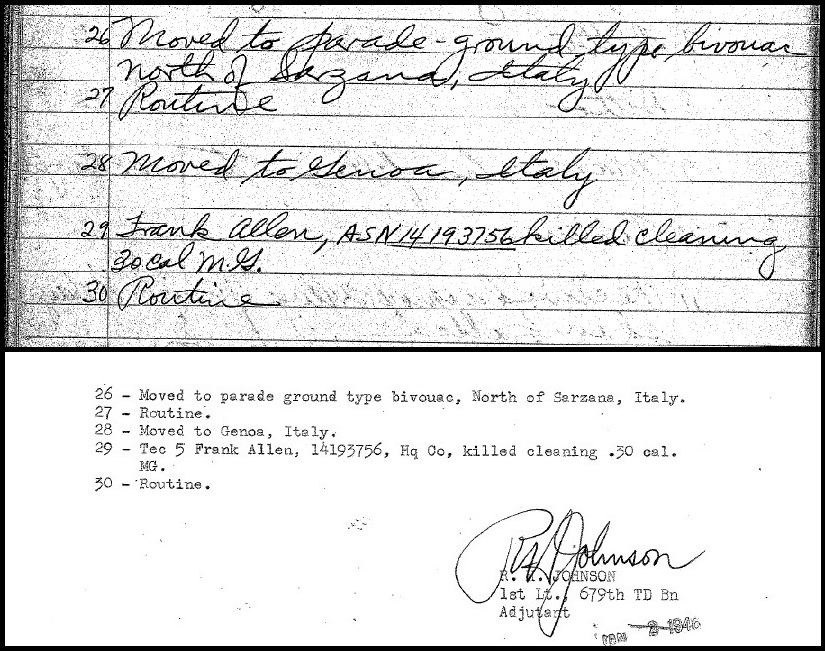 26 Moved to Parade-ground type, bivouac
North of Sarzana, Italy
27 Routine
28 Moved to Genoa, Italy
29 Frank Allen, ASN 14193756 killed cleaning
30 cal M.G.
30 Routine
26 - Moved to parade ground type bivouac, North of Sarzana, Italy.
27 - Routine.
28 - Moved to Genoa, Italy.
29 - Tec 5 Frank Allen, 14193756, Hq Co, killed cleaning .30 cal.
MG.
30 - Routine.
R.A. Johnson
JOHNSON
1st Lt., 679th TD Bn
Adjutant